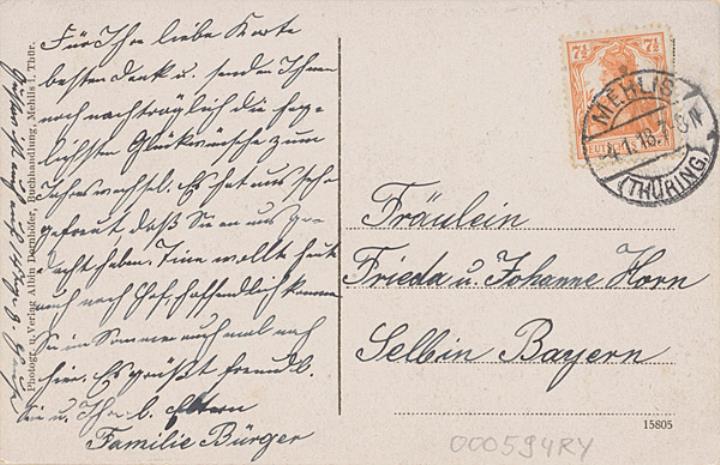 Für Ihre liebe Karte
besten Dank u. senden Ihnen
noch nachträglich die herz-
lichsten Glückwünsche zum
Jahreswechsel. Es hat uns sehr
gefreut, daß Sie an uns ge-
dacht haben. Tine wollte heute
auch nach Hof, hoffendlich kommen
Sie im Sommer auch mal nach
hier. Es grüßt freundl.
Sie u. Ihre l. Eltern
Familie Bürger
Photogr. u. Verlag Albin Dornhöfer, Buchhandlung, Mehlis i. Thür.
7½ 7½
DEUTSCHES REICH
MEHLIS
-4.1.18.7-8N
(THÜRING.)
Fräulein
Frieda u. Johanne Horn
Selbin Bayern
15805
000594RY